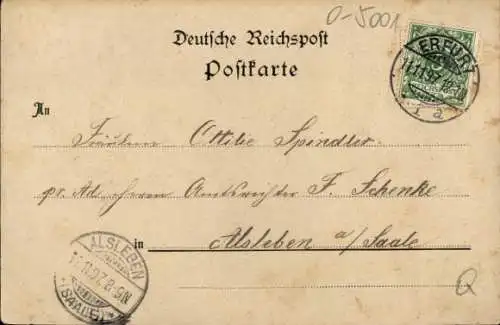 0-5001
Deutsche Reichspost
Postkarte
ERFURT
11.11.97.
1 a
An
Fräulein Ottilie Spindler
pr. Ad. Herrn Amtsrichter F. Schenke
in Alsleben a/Saale
ALSLEBEN
11.11.97. 8-9N
(SAALE)
Q